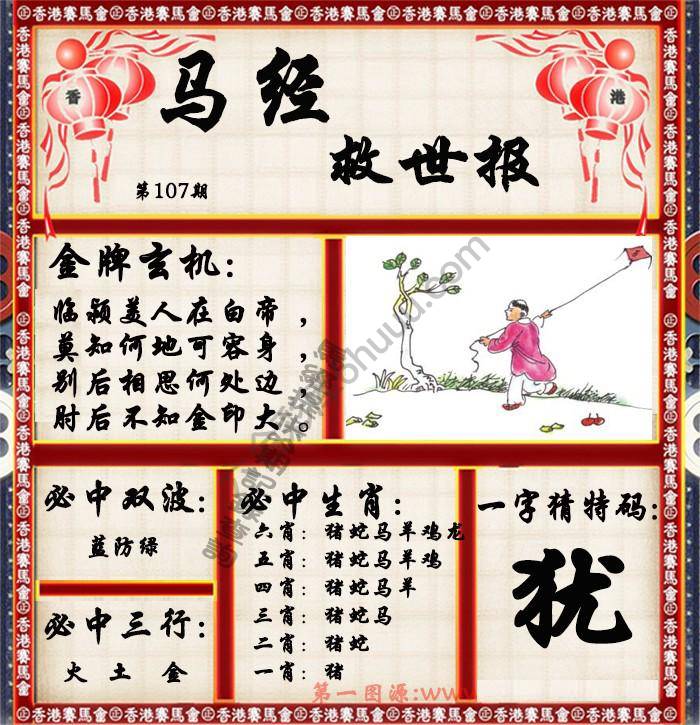 香港賽馬會㊣香港賽馬會㊣香港賽馬會㊣香港賽馬會㊣香港賽馬會
香
港
马经
救世报
第107期
金牌玄机：
临颍美人在白帝，
莫知何地可容身，
别后相思何处边，
肘后不知金印大。
必中双波：
蓝防绿
必中三行：
火 土 金
必中生肖：
六肖：猪蛇马羊鸡龙
五肖：猪蛇马羊鸡
四肖：猪蛇马羊
三肖：猪蛇马
二肖：猪蛇
一肖：猪
一字猜特码：
犹
第一图源:www